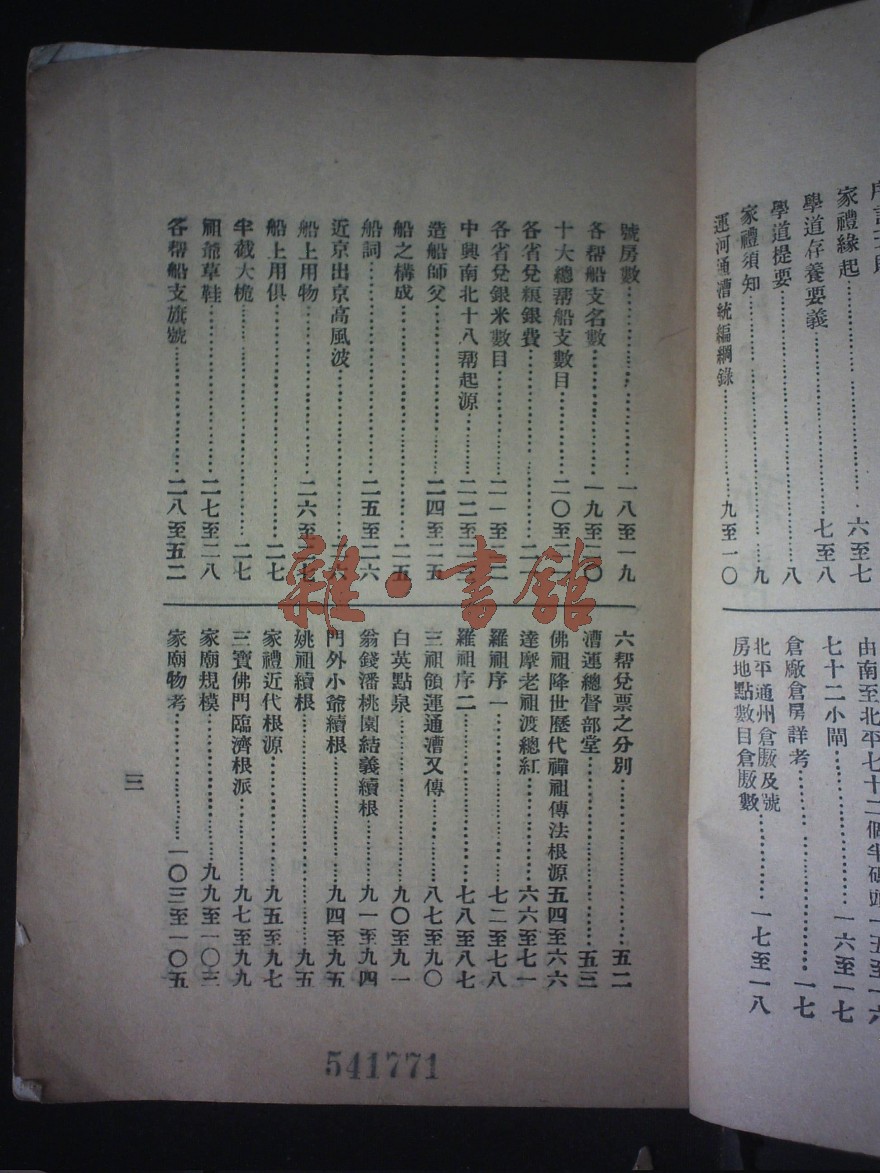 家禮緣起……六至七
學道存養要義……七至八
學道提要……八
家禮須知……九
運河通漕統編綱錄……九至一〇
由南至北平七十二個半碼頭一五至一六
七十二小閘……一六至一七
倉廠倉房詳考……一七
北平通州倉厫及號
房地點數目倉厫數……一七至一八
號房數……一八至一九
各帮船支名數……一九至二〇
十大總帮船支數目……二〇至二一
各省兌糧銀費……二一
各省兌銀米數目……二一至二二
中興南北十八帮起源……二二至二三
造船師父……二四至二五
船之構成……二五
船詞……二五至二六
近京出京高風波……二六
船上用物……二六至二七
船上用俱……二七
半截大桅……二七
祖爺草鞋……二七至二八
各帮船支旗號……二八至五二
六帮兌票之分別……五二
漕運總督部堂……五三
佛祖降世歷代禪祖傳法根源五四至六六
達摩老祖渡總紅……六六至七一
羅祖序一……七二至七八
羅祖序二……七八至八七
三祖領運通漕又傳……八七至九〇
白英點泉……九〇至九一
翁錢潘桃園結義續根……九一至九四
門外小爺續根……九四至九五
姚祖續根……九五
家禮近代根源……九五至九七
三寶佛門臨濟根派……九七至九九
家廟規模……九九至一〇三
家廟物考……一〇三至一〇五
三
541771
雜·書館